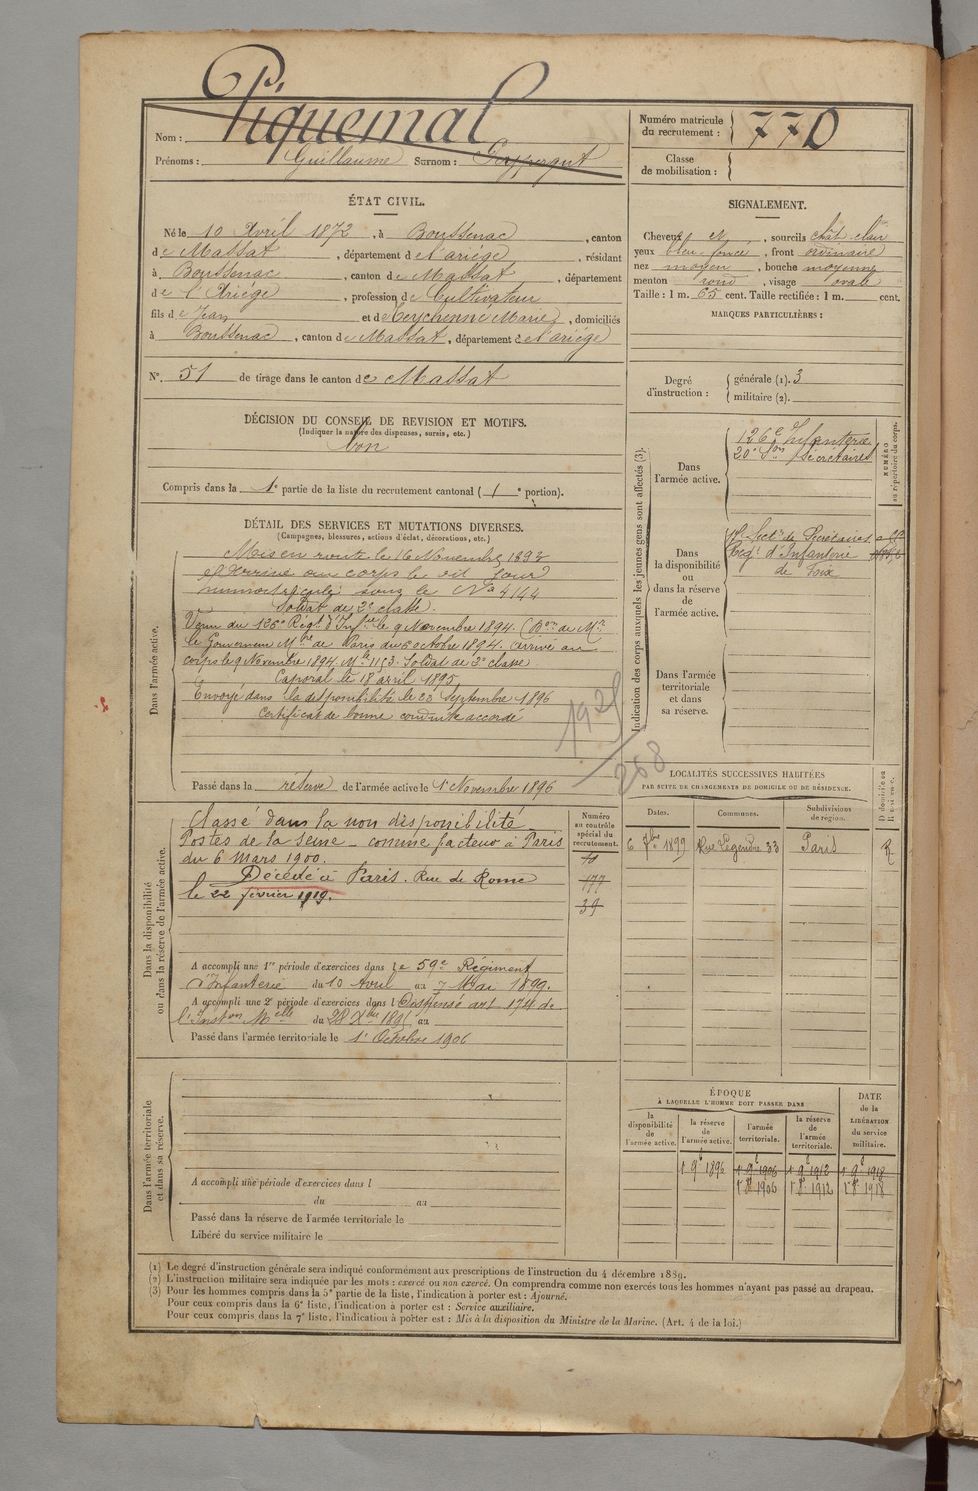 Nom : Piquemal
Prénoms : Guillaume Surnom :
Numéro matricule du recrutement : 770
Classe de mobilisation :
ÉTAT CIVIL.
Né le 10 Avril 1872, à Boussenac, canton
de Massat, département de l'ariége, résidant
à Boussenac, canton de Massat, département
de l'Ariége, profession de Cultivateur
fils de Jean et de Teychenné Marie, domiciliés
à Boussenac, canton de Massat, département de l'ariége
N°. 51 de tirage dans le canton de Massat
SIGNALEMENT.
Cheveux et , sourcils chât-clair
yeux bleu foncé, front ordinaire
nez moyen, bouche moyenne
menton rond, visage ovale
Taille : 1 m. 65 cent. Taille rectifiée : 1 m. cent.
MARQUES PARTICULIÈRES :
Degré d'instruction : générale (1). 3
militaire (2).
DÉCISION DU CONSEIL DE REVISION ET MOTIFS.
(Indiquer la nature des dispenses, sursis, etc.)
bon
Compris dans la 1e partie de la liste du recrutement cantonal (1e portion).
DÉTAIL DES SERVICES ET MUTATIONS DIVERSES.
(Campagnes, blessures, actions d'éclat, décorations, etc.)
Dans l'armée active.
Mis en route le 16 Novembre 1893
Arrivé au corps le dit jour
immatriculé sous le N° 4144
Soldat de 2e classe.
Venu du 126e Régt d'Infrie le 9 Novembre 1894. (Don de Mr
le Gouverneur Mre de Paris du 6 octobre 1894. arrivé au
corps le 9 Novembre 1894. Mle 1153. Soldat de 2e classe
Caporal le 18 avril 1895
Envoyé dans la disponibilité le 23 Septembre 1896
Certificat de bonne conduite accordé
1925/268
Passé dans la réserve de l'armée active le 1r Novembre 1896
Indication des corps auxquels les jeunes gens sont affectés (3).
NUMÉRO au répertoire du corps.
Dans l'armée active.
126e Infanterie
20e Son Secrétaires
Dans la disponibilité ou dans la réserve de l'armée active.
Secton de Secrétaires
Régt d'Infanterie
de Foix
Dans l'armée territoriale et dans sa réserve.
Dans la disponibilité ou dans la réserve de l'armée active.
Classé dans la non disponibilité
Postes de la Seine - comme facteur à Paris
du 6 Mars 1900.
Décédé à Paris. Rue de Rome
le 22 février 1919.
Numéro au contrôle spécial du recrutement.
177
39
A accompli une 1re période d'exercices dans le 59e Régiment
d'Infanterie du 10 Avril au 7 Mai 1899.
A accompli une 2e période d'exercices dans l Dispensé art 174 de
l'Inston Melle du 28 Xbre 1895 au
Passé dans l'armée territoriale le 1r Octobre 1906
LOCALITÉS SUCCESSIVES HABITÉES
PAR SUITE DE CHANGEMENTS DE DOMICILE OU DE RÉSIDENCE.
Dates. Communes. Subdivisions de région. D domicile ou R résidence.
6 7bre 1899 Rue Legendre 33 Paris R
Dans l'armée territoriale et dans sa réserve.
A accompli une période d'exercices dans l
du au
Passé dans la réserve de l'armée territoriale le
Libéré du service militaire le
ÉPOQUE
À LAQUELLE L'HOMME DOIT PASSER DANS
la disponibilité de l'armée active.
la réserve de l'armée active.
l'armée territoriale.
la réserve de l'armée territoriale.
DATE de la LIBÉRATION du service militaire.
1r 9e 1896 1r 9e 1906 1r 9e 1912 1r 9e 1918
1r 8e 1906 1r 8e 1912 1r 8e 1918
(1) Le degré d'instruction générale sera indiqué conformément aux prescriptions de l'instruction du 4 décembre 1889.
(2) L'instruction militaire sera indiquée par les mots : exercé ou non exercé. On comprendra comme non exercés tous les hommes n'ayant pas passé au drapeau.
(3) Pour les hommes compris dans la 5e partie de la liste, l'indication à porter est : Ajourné.
Pour ceux compris dans la 6e liste, l'indication à porter est : Service auxiliaire.
Pour ceux compris dans la 7e liste, l'indication à porter est : Mis à la disposition du Ministre de la Marine. (Art. 4 de la loi.)